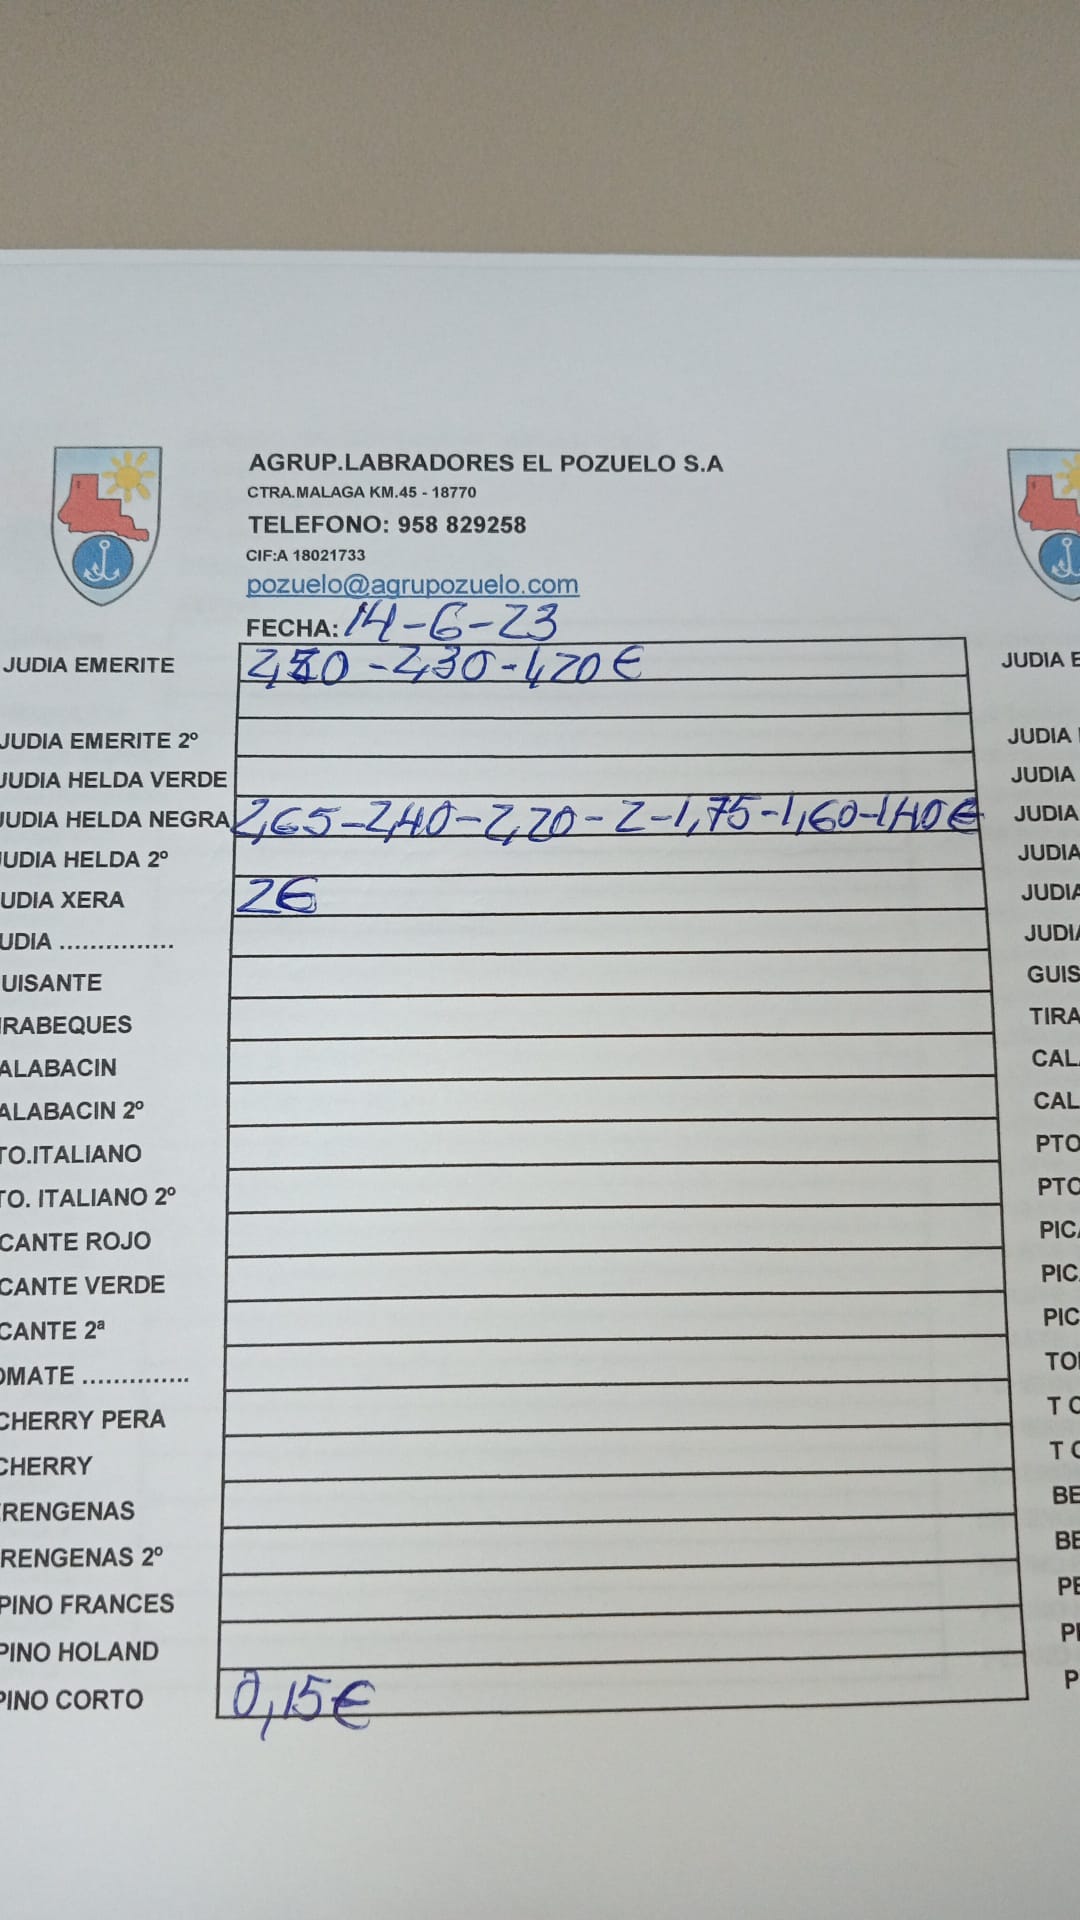 AGRUP.LABRADORES EL POZUELO S.A
CTRA.MALAGA KM.45 - 18770
TELEFONO: 958 829258
CIF:A 18021733
pozuelo@agrupozuelo.com
FECHA: 14-6-23
JUDIA EMERITE 2,80-2,30-1,20€ JUDIA E
JUDIA EMERITE 2º JUDIA
JUDIA HELDA VERDE JUDIA
JUDIA HELDA NEGRA 2,65-2,40-2,20-2-1,75-1,60-1,40€ JUDIA
JUDIA HELDA 2º JUDIA
UDIA XERA 2€ JUDIA
UDIA ............... JUDIA
UISANTE GUIS
IRABEQUES TIRA
ALABACIN CAL
ALABACIN 2º CAL
TO.ITALIANO PTO
TO. ITALIANO 2º PTO
CANTE ROJO PICA
CANTE VERDE PIC
CANTE 2ª PIC
OMATE .............. TO
CHERRY PERA T C
CHERRY T C
RENGENAS BE
RENGENAS 2º BE
PINO FRANCES PE
PINO HOLAND P
PINO CORTO 0,15€ P